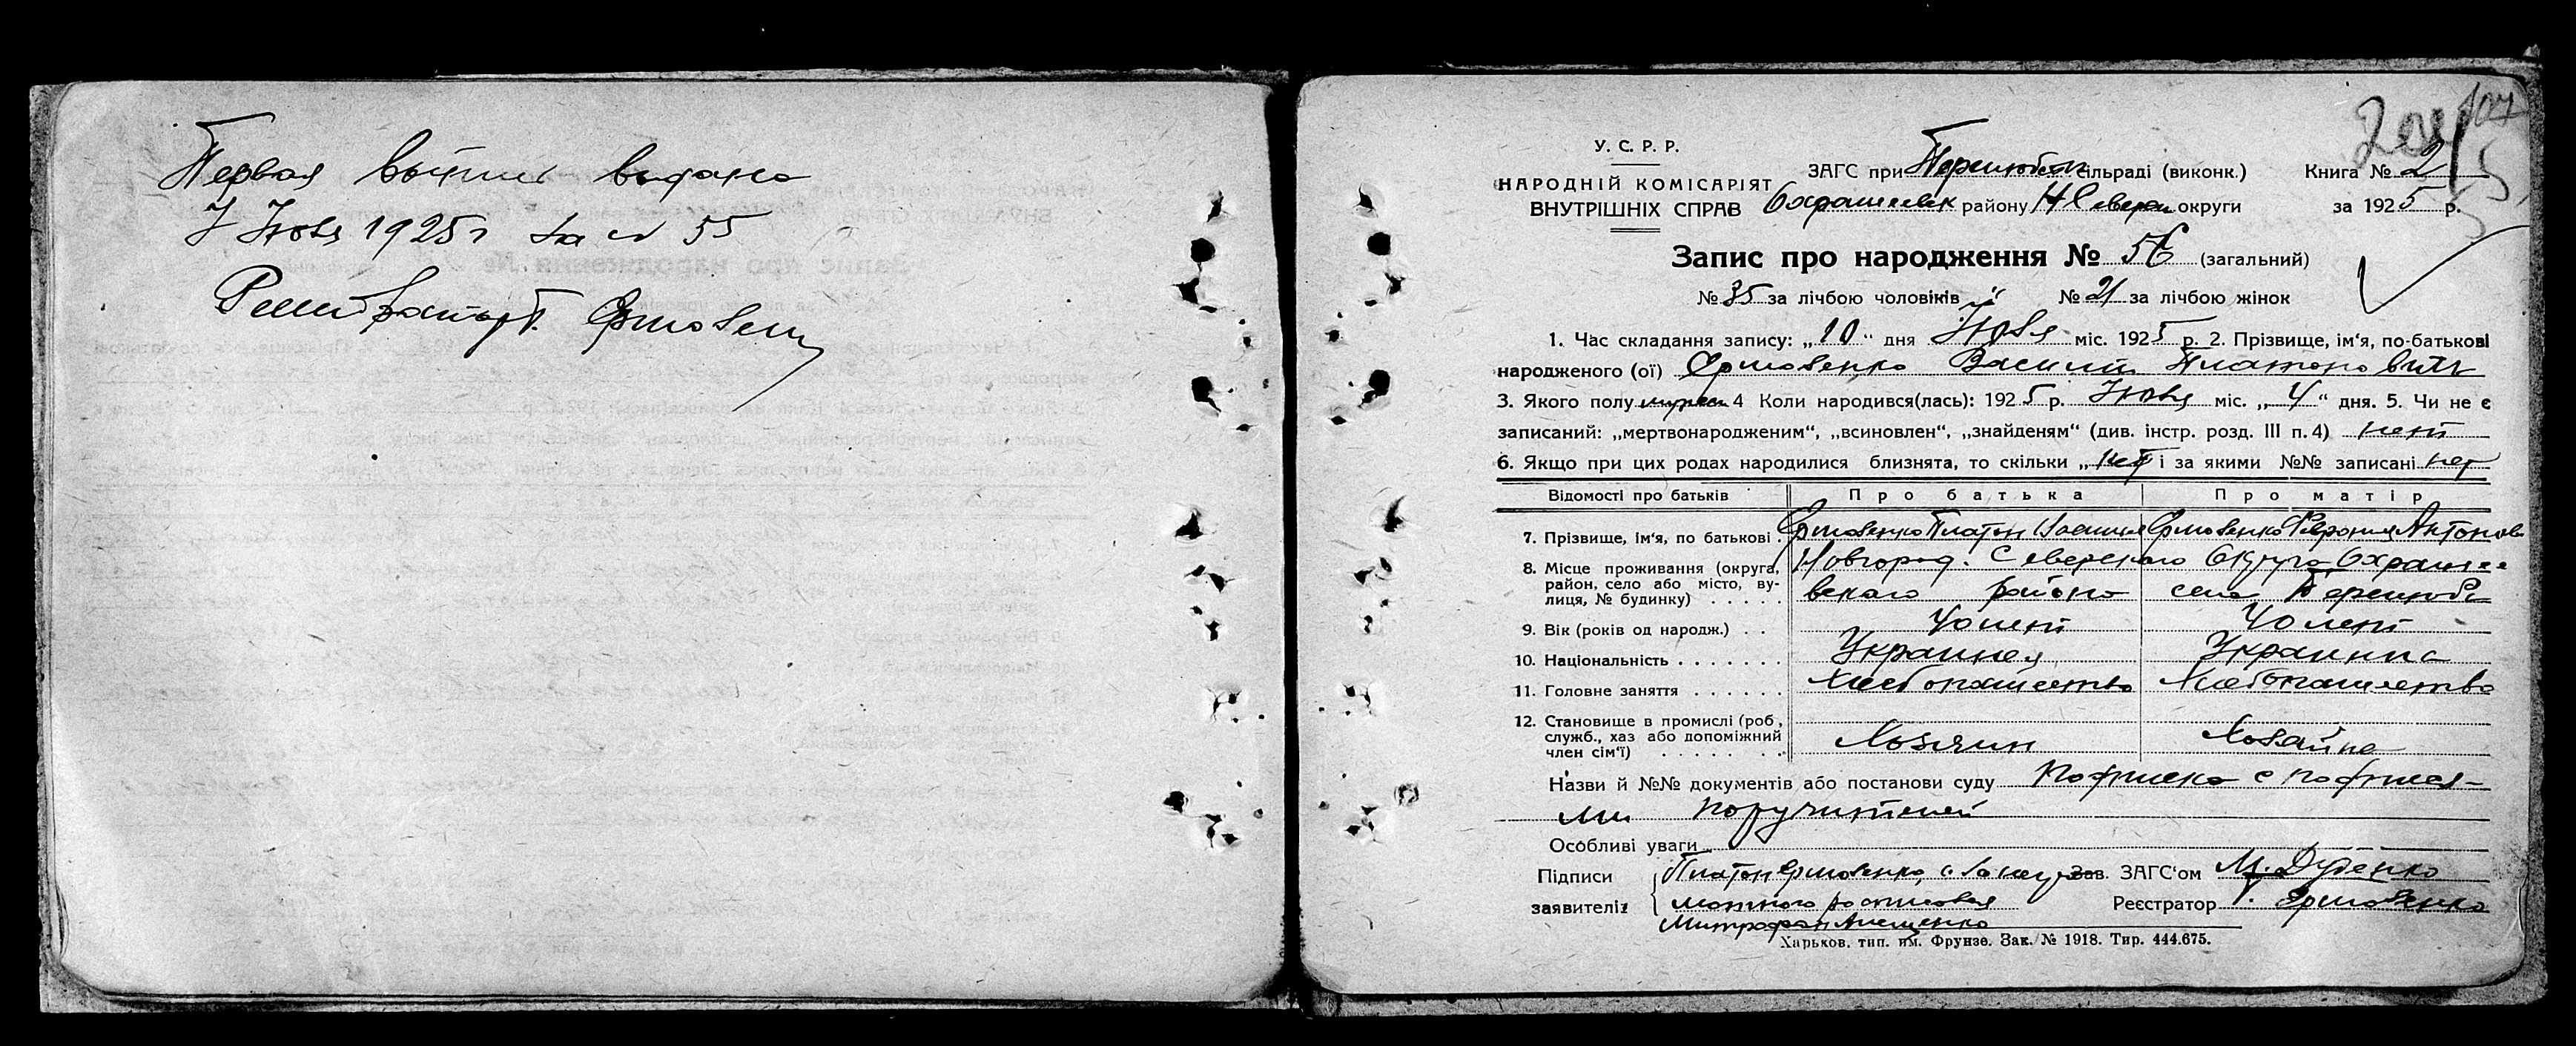 Первая выпись выдана
7 Июля 1925 г за № 55
Регистратор Т. Ярмовенко
У. С. Р. Р.
НАРОДНІЙ КОМІСАРІЯТ
ВНУТРІШНІХ СПРАВ
ЗАГС при сільраді (виконк.)
району Н Северск округи
Книга № 2
за 1925 р.
Запис про народження № 56 (загальний)
№ 35 за лічбою чоловіків № 21 за лічбою жінок
1. Час складання запису: „10“ дня Июля міс. 1925 р. 2. Прізвище, ім‘я, по-батькові
народженого (ої) Ярмовенко Василий Платонович
3. Якого полу мужск 4 Коли народився(лась): 1925 р. Июля міс. „4“ дня. 5. Чи не є
записаний: „мертвонародженим“, „всиновлен“, „знайденям“ (див. інстр. розд. III п. 4) нет
6. Якщо при цих родах народилися близнята, то скільки „нет і за якими №№ записані нет
Відомості про батьків Про батька Про матір
7. Прізвище, ім‘я, по батькові Ярмовенко Платон Ярмовенко Феврония Антонов
8. Місце проживання (округа, район, село або місто, вулиця, № будинку) Новгород. Северского Округа Охрамее
вского района села
9. Вік (років од народж.) 40 лет 40 лет
10. Національність Украинец Украинка
11. Головне заняття Хлебопашество Хлебопашество
12. Становище в промислі (роб, служб., хаз або допоміжний член сім‘ї) Хозяин Хозяйка
Назви й №№ документів або постанови суду Подписка с подпися-
ми поручителей
Особливі уваги
Підписи Платон Ярмовенко, Зав. ЗАГС‘ом М. Дуденко
заявителів расписался Реєстратор Т. Ярмовенко
Митрофан
Харьков. тип. им. Фрунзе. Зак. № 1918. Тир. 444.675.